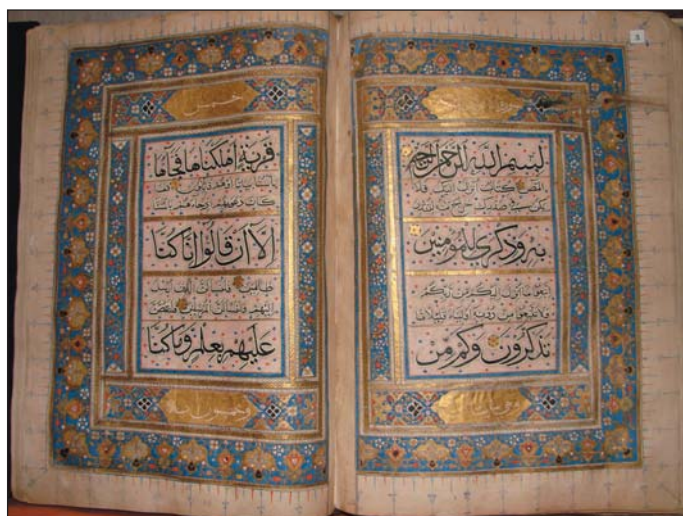 بسم الله الرحمن الرحيم
المص كتاب انزل اليك فلا
يكن في صدرك حرج منه لتنذر
به وذكرى للمؤمنين
اتبعوا ما انزل اليكم من ربكم
ولا تتبعوا من دونه اولياء قليلا ما
تذكرون وكم من
خمس
قرية اهلكناها فجاءها
بأسنا بياتا او هم قائلون فما
كان دعواهم اذ جاءهم بأسنا
الا ان قالوا انا كنا
ظالمين فلنسألن الذين ارسل
اليهم ولنسألن المرسلين فلنقصن
عليهم بعلم وما كنا